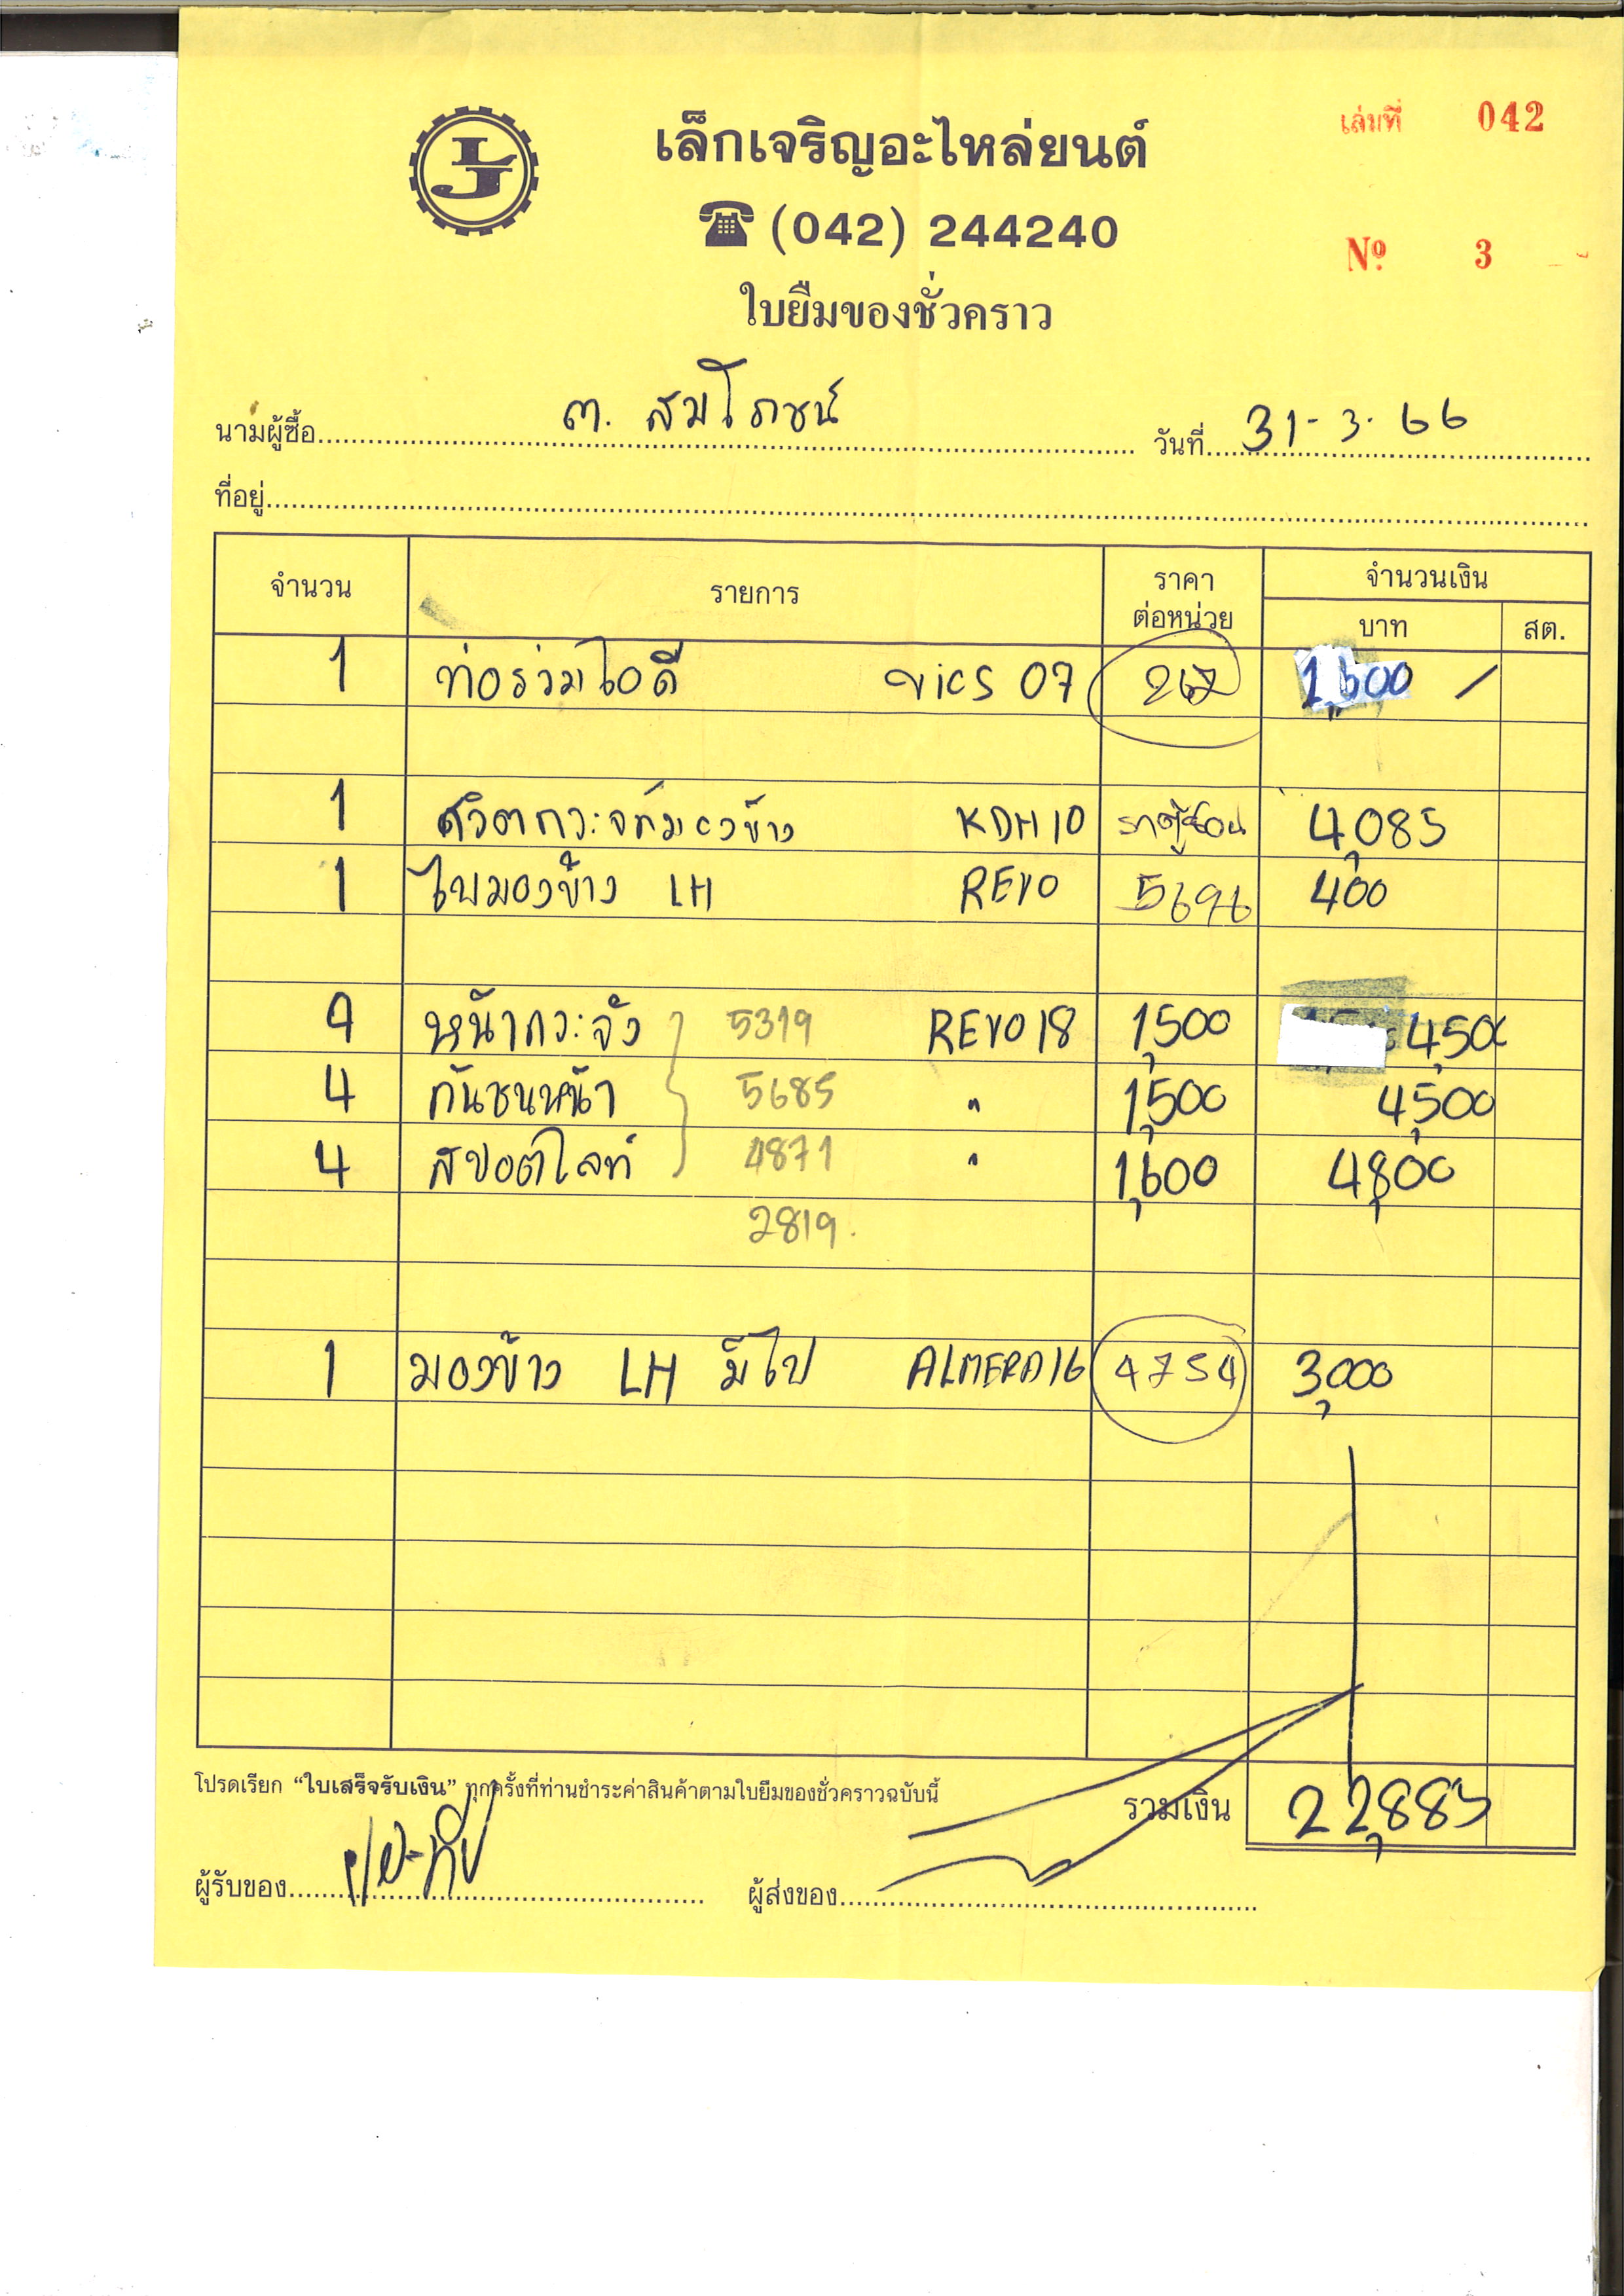 เล่มที่ 042
LJ
เล็กเจริญอะไหล่ยนต์
(042) 244240
Nº 3
ใบยืมของชั่วคราว
นามผู้ซื้อ ต. สมโภชน์ วันที่ 31-3-66
ที่อยู่
จำนวน รายการ ราคาต่อหน่วย จำนวนเงิน
บาท สต.
1 ท่อร่วมไอดี vios 07 1,600
1 สวิตกระจกมองข้าง KDH10 4,085
1 ไฟมองข้าง LH REVO 5696 400
4 หน้ากระจัง 5319 REVO 18 1,500 4,500
4 กันชนหน้า 5685 " 1,500 4,500
4 สปอตไลท์ 4871 " 1,600 4,800
2819
1 มองข้าง LH มีไฟ ALMERA16 4754 3,000
โปรดเรียก “ใบเสร็จรับเงิน” ทุกครั้งที่ท่านชำระค่าสินค้าตามใบยืมของชั่วคราวฉบับนี้
รวมเงิน 22,885
ผู้รับของ ผู้ส่งของ